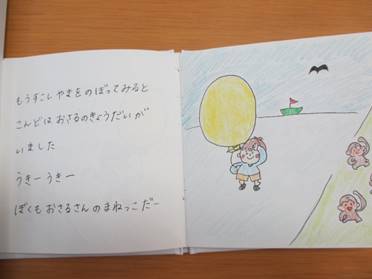 もうすこし やまを のぼってみると
こんどは おさるのきょうだいが
いました
うきー うきー
ぼくも おさるさんの まねっこ だー